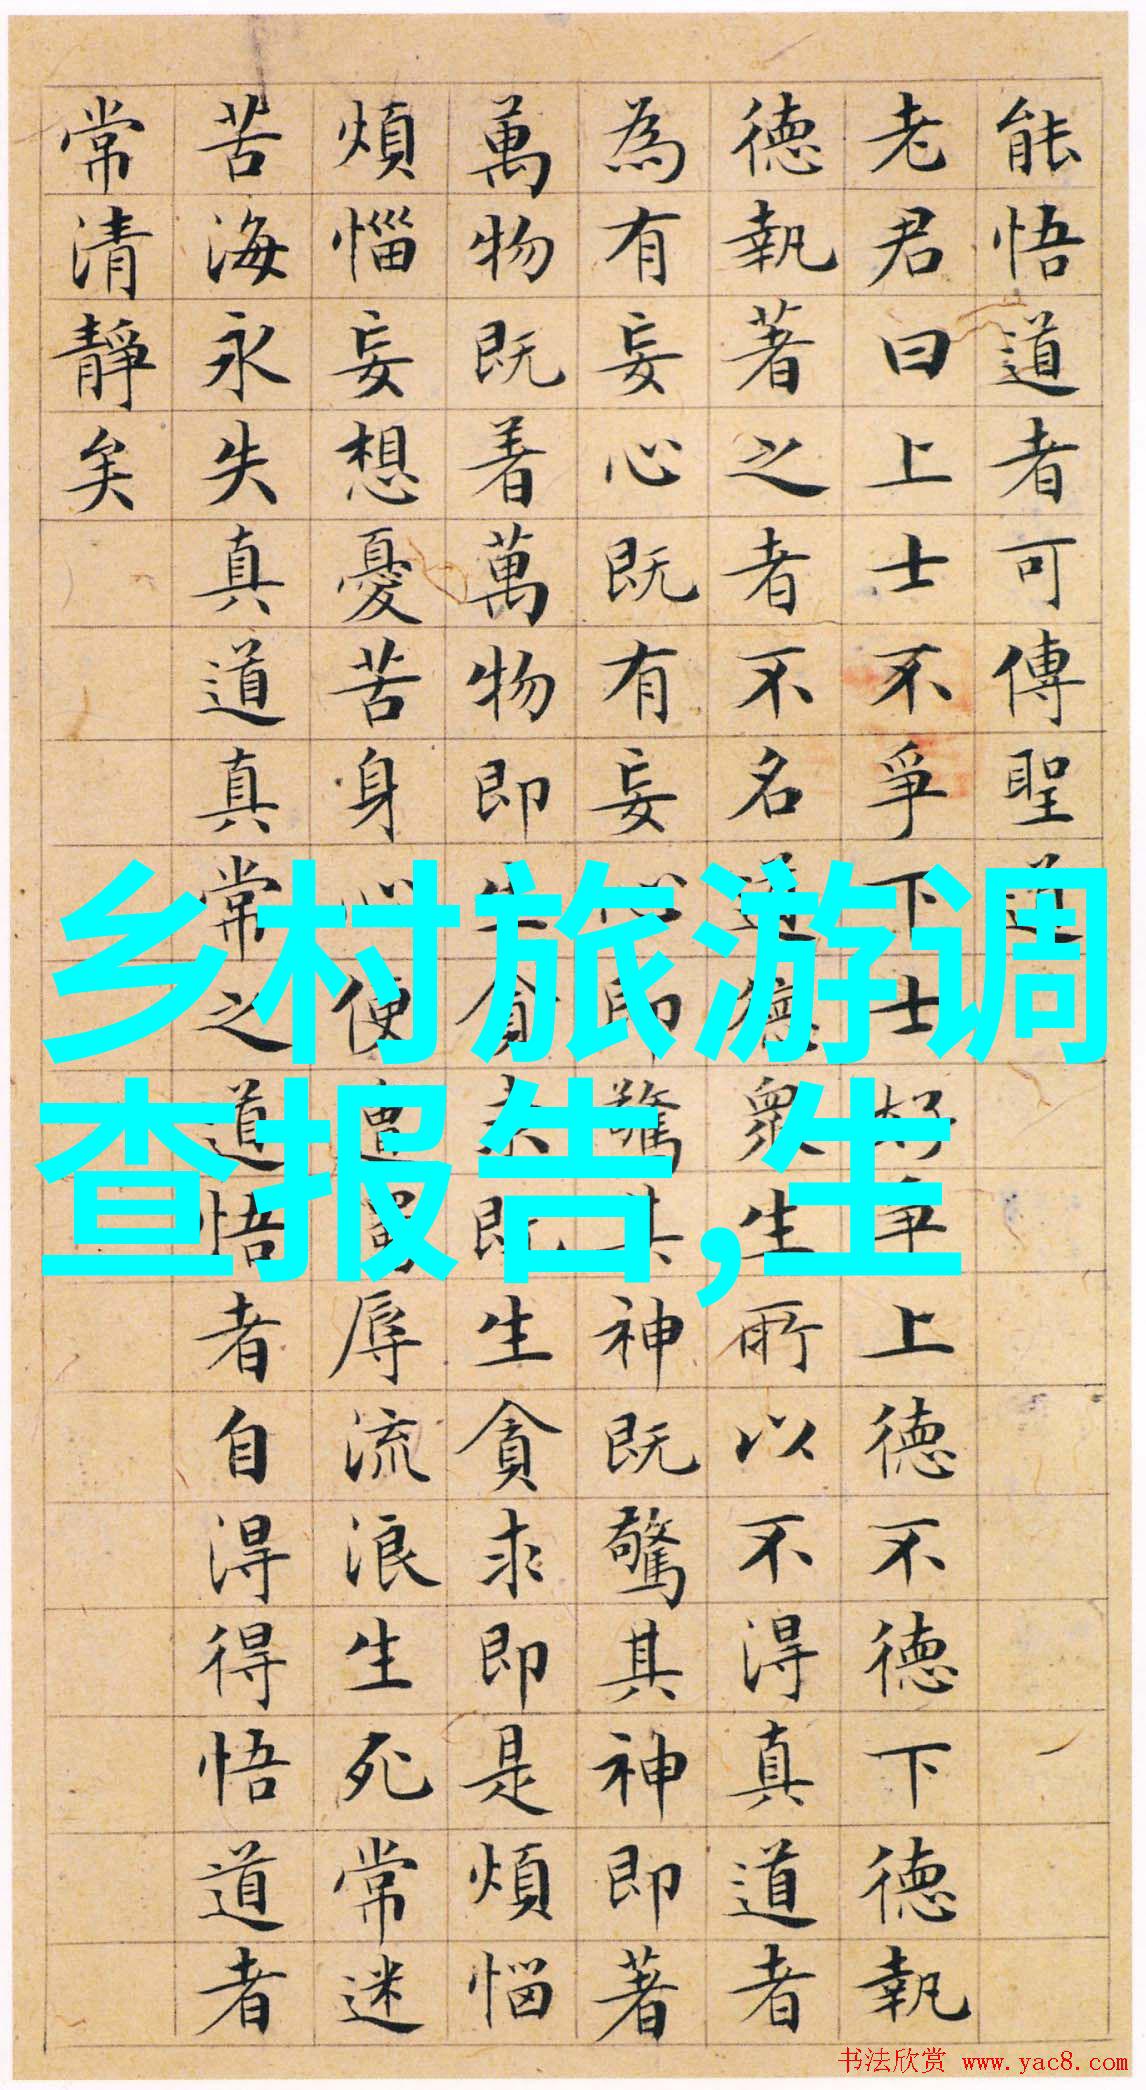 能悟道者可傳聖道
老君曰上士不爭下士好争上德不德下德執
德執著之者不名道德眾生所以不得真道者
為有妄心既有妄心即驚其神既驚其神即著
萬物既着萬物即生貪求既生貪求即是煩惱
煩惱妄想憂苦身心便遭濁辱流浪生死常迷
苦海永失真道真常之道悟者自得得悟道者
常清靜矣
乡村旅游调
查报告,生
书法欣赏 www.yac8.com